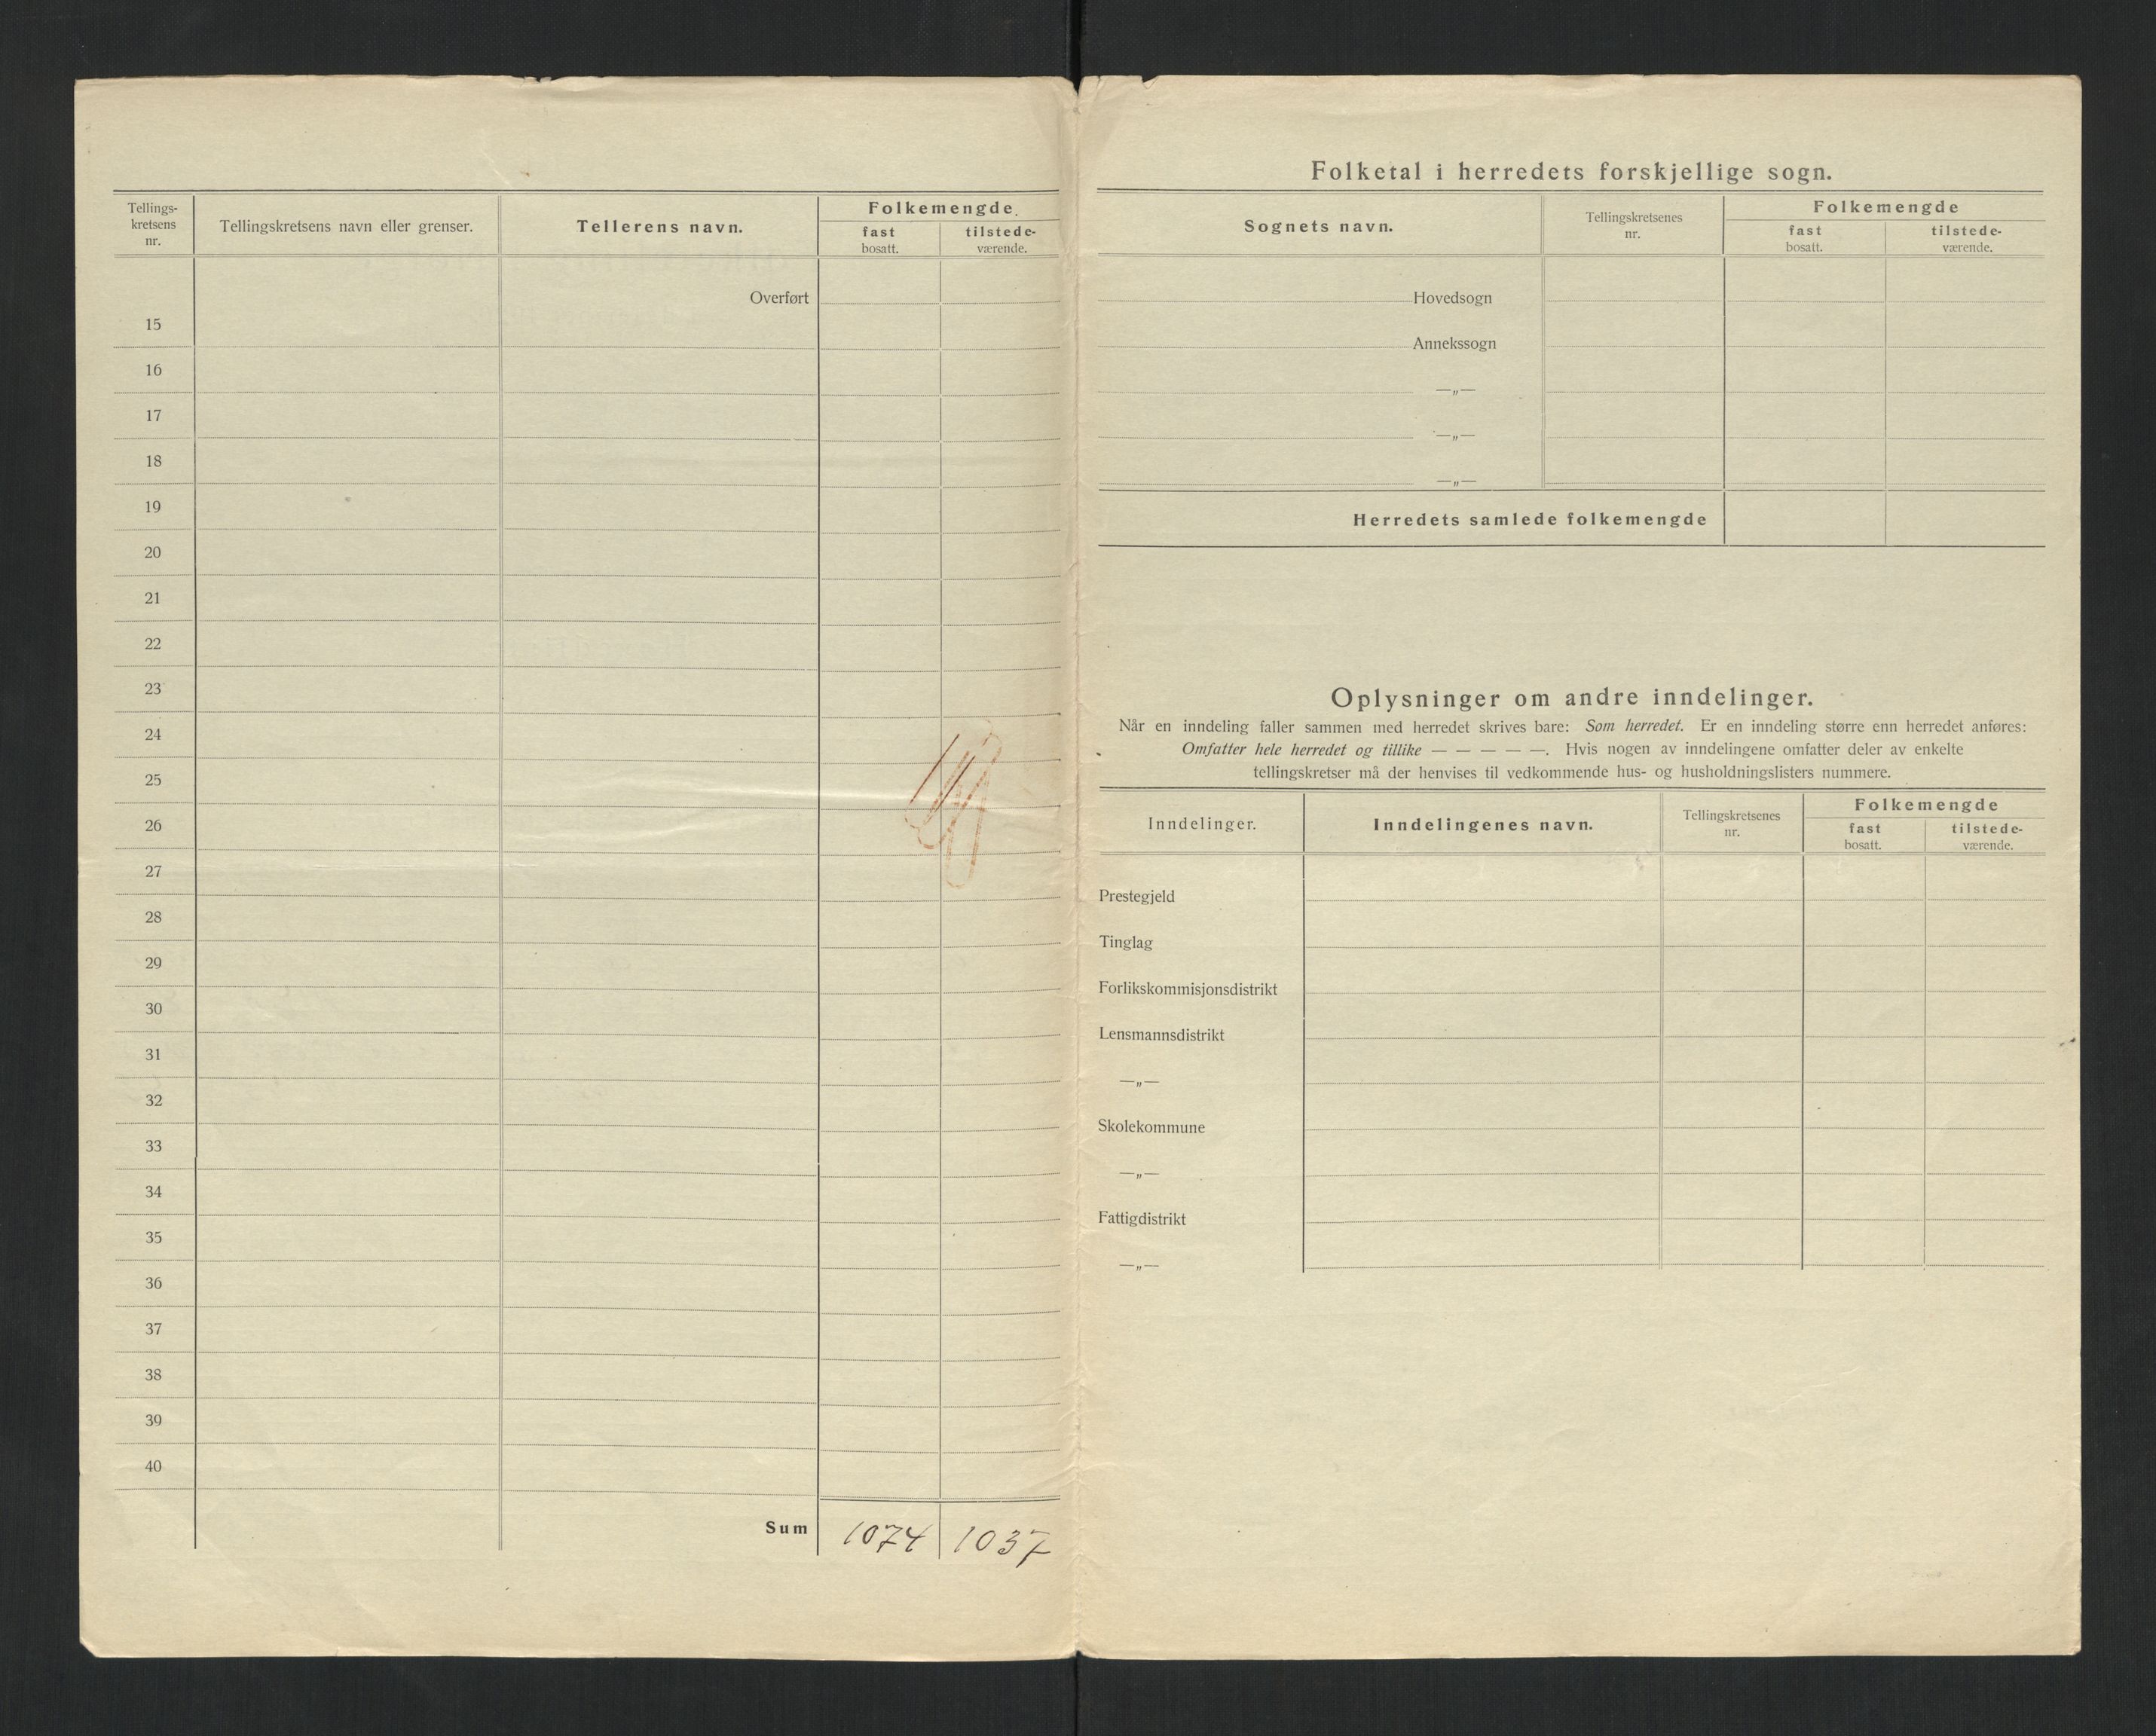 Tellings-
kretsens
nr.
Tellingskretsens navn eller grenser.
Tellerens navn.
Folkemengde.
fast
bosatt.
tilstede-
værende.
Overført
15
16
17
18
19
20
21
22
23
24
25
26
27
28
29
30
31
32
33
34
35
36
37
38
39
40
Sum 1074 1037
Folketal i herredets forskjellige sogn.
Sognets navn.
Tellingskretsenes
nr.
Folkemengde
fast
bosatt.
tilstede-
værende.
Hovedsogn
Annekssogn
—„—
—„—
—„—
Herredets samlede folkemengde
Oplysninger om andre inndelinger.
Når en inndeling faller sammen med herredet skrives bare: Som herredet. Er en inndeling større enn herredet anføres:
Omfatter hele herredet og tillike — — — — —. Hvis nogen av inndelingene omfatter deler av enkelte
tellingskretser må der henvises til vedkommende hus- og husholdningslisters nummere.
Inndelinger.
Inndelingenes navn.
Tellingskretsenes
nr.
Folkemengde
fast
bosatt.
tilstede-
værende.
Prestegjeld
Tinglag
Forlikskommisjonsdistrikt
Lensmannsdistrikt
—„—
Skolekommune
—„—
Fattigdistrikt
—„—